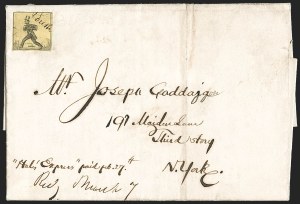 Mr. Joseph Goddard
191 Maiden Lane
Third story
N. York.
"Hale's Express" paid feb. 27th
Recd March 7